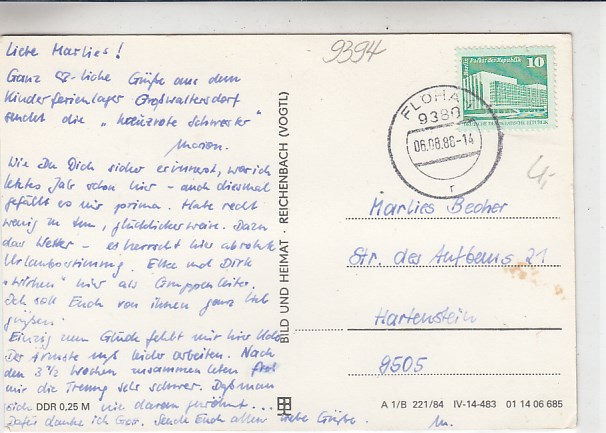 Liebe Marlies!
Ganz 88-liche Grüße aus dem
Kinderferienlager Großwaltersdorf
sendet die "kreuzrote Schwester"
Marion.
Wie Du Dich sicher erinnerst, war ich
letztes Jahr schon hier - auch diesmal
gefällt es mir prima. Habe recht
wenig zu tun, glücklicherweise. Dazu
das Wetter - es herrscht hier absolute
Urlaubsstimmung. Elke und Dirk
"wirken" hier als Gruppenleiter.
Ich soll Euch von ihnen ganz lieb
grüßen.
Einzig zum Glück fehlt mir hier Udo.
Der Ärmste muß leider arbeiten. Nach
den 3 1/2 Wochen zusammen leben
mir die Trennung sehr schwer. Daß man
sich nie daran gewöhnt...
Dafür danke ich Gott. Sende Euch allen liebe Grüße. M.
DDR 0,25 M
BILD UND HEIMAT · REICHENBACH (VOGTL)
9394
FLÖHA 1
9380
06.08.86-14
r
Berlin, Palast der Republik
10
DEUTSCHE DEMOKRATISCHE REPUBLIK
4,-
Marlies Becher
Str. des Aufbaus 21
Hartenstein
9505
A 1/B 221/84 IV-14-483 01 14 06 685